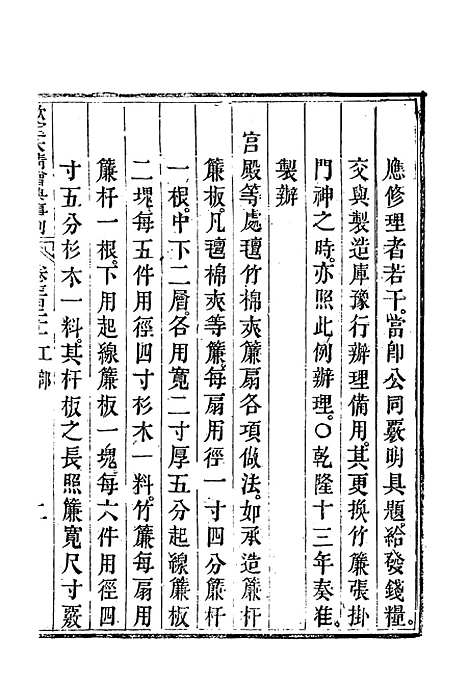 應修理者若干。當卽公同覈明具題。給發錢糧。
交與製造庫豫行辦理備用。其更換竹簾張掛
門神之時。亦照此例辦理。○乾隆十三年奏准。
製辦
宮殿等處氊竹棉夾簾扇各項做法。如承造簾杆
簾板。凡氊棉夾等簾。每扇用徑一寸四分簾杆
一根。中下二層。各用寬二寸厚五分起線簾板
二塊。每五件用徑四寸杉木一料。竹簾每扇用
簾杆一根。下用起線簾板一塊。每六件用徑四
寸五分杉木一料。其杆板之長。照簾寬尺寸覈
欽定大清會典事例 工部